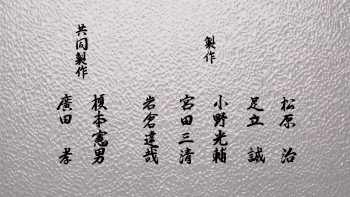 製作
松原 治
足立 誠
小野光輔
宮田三清
岩倉達哉
共同製作
榎本憲男
廣田 孝